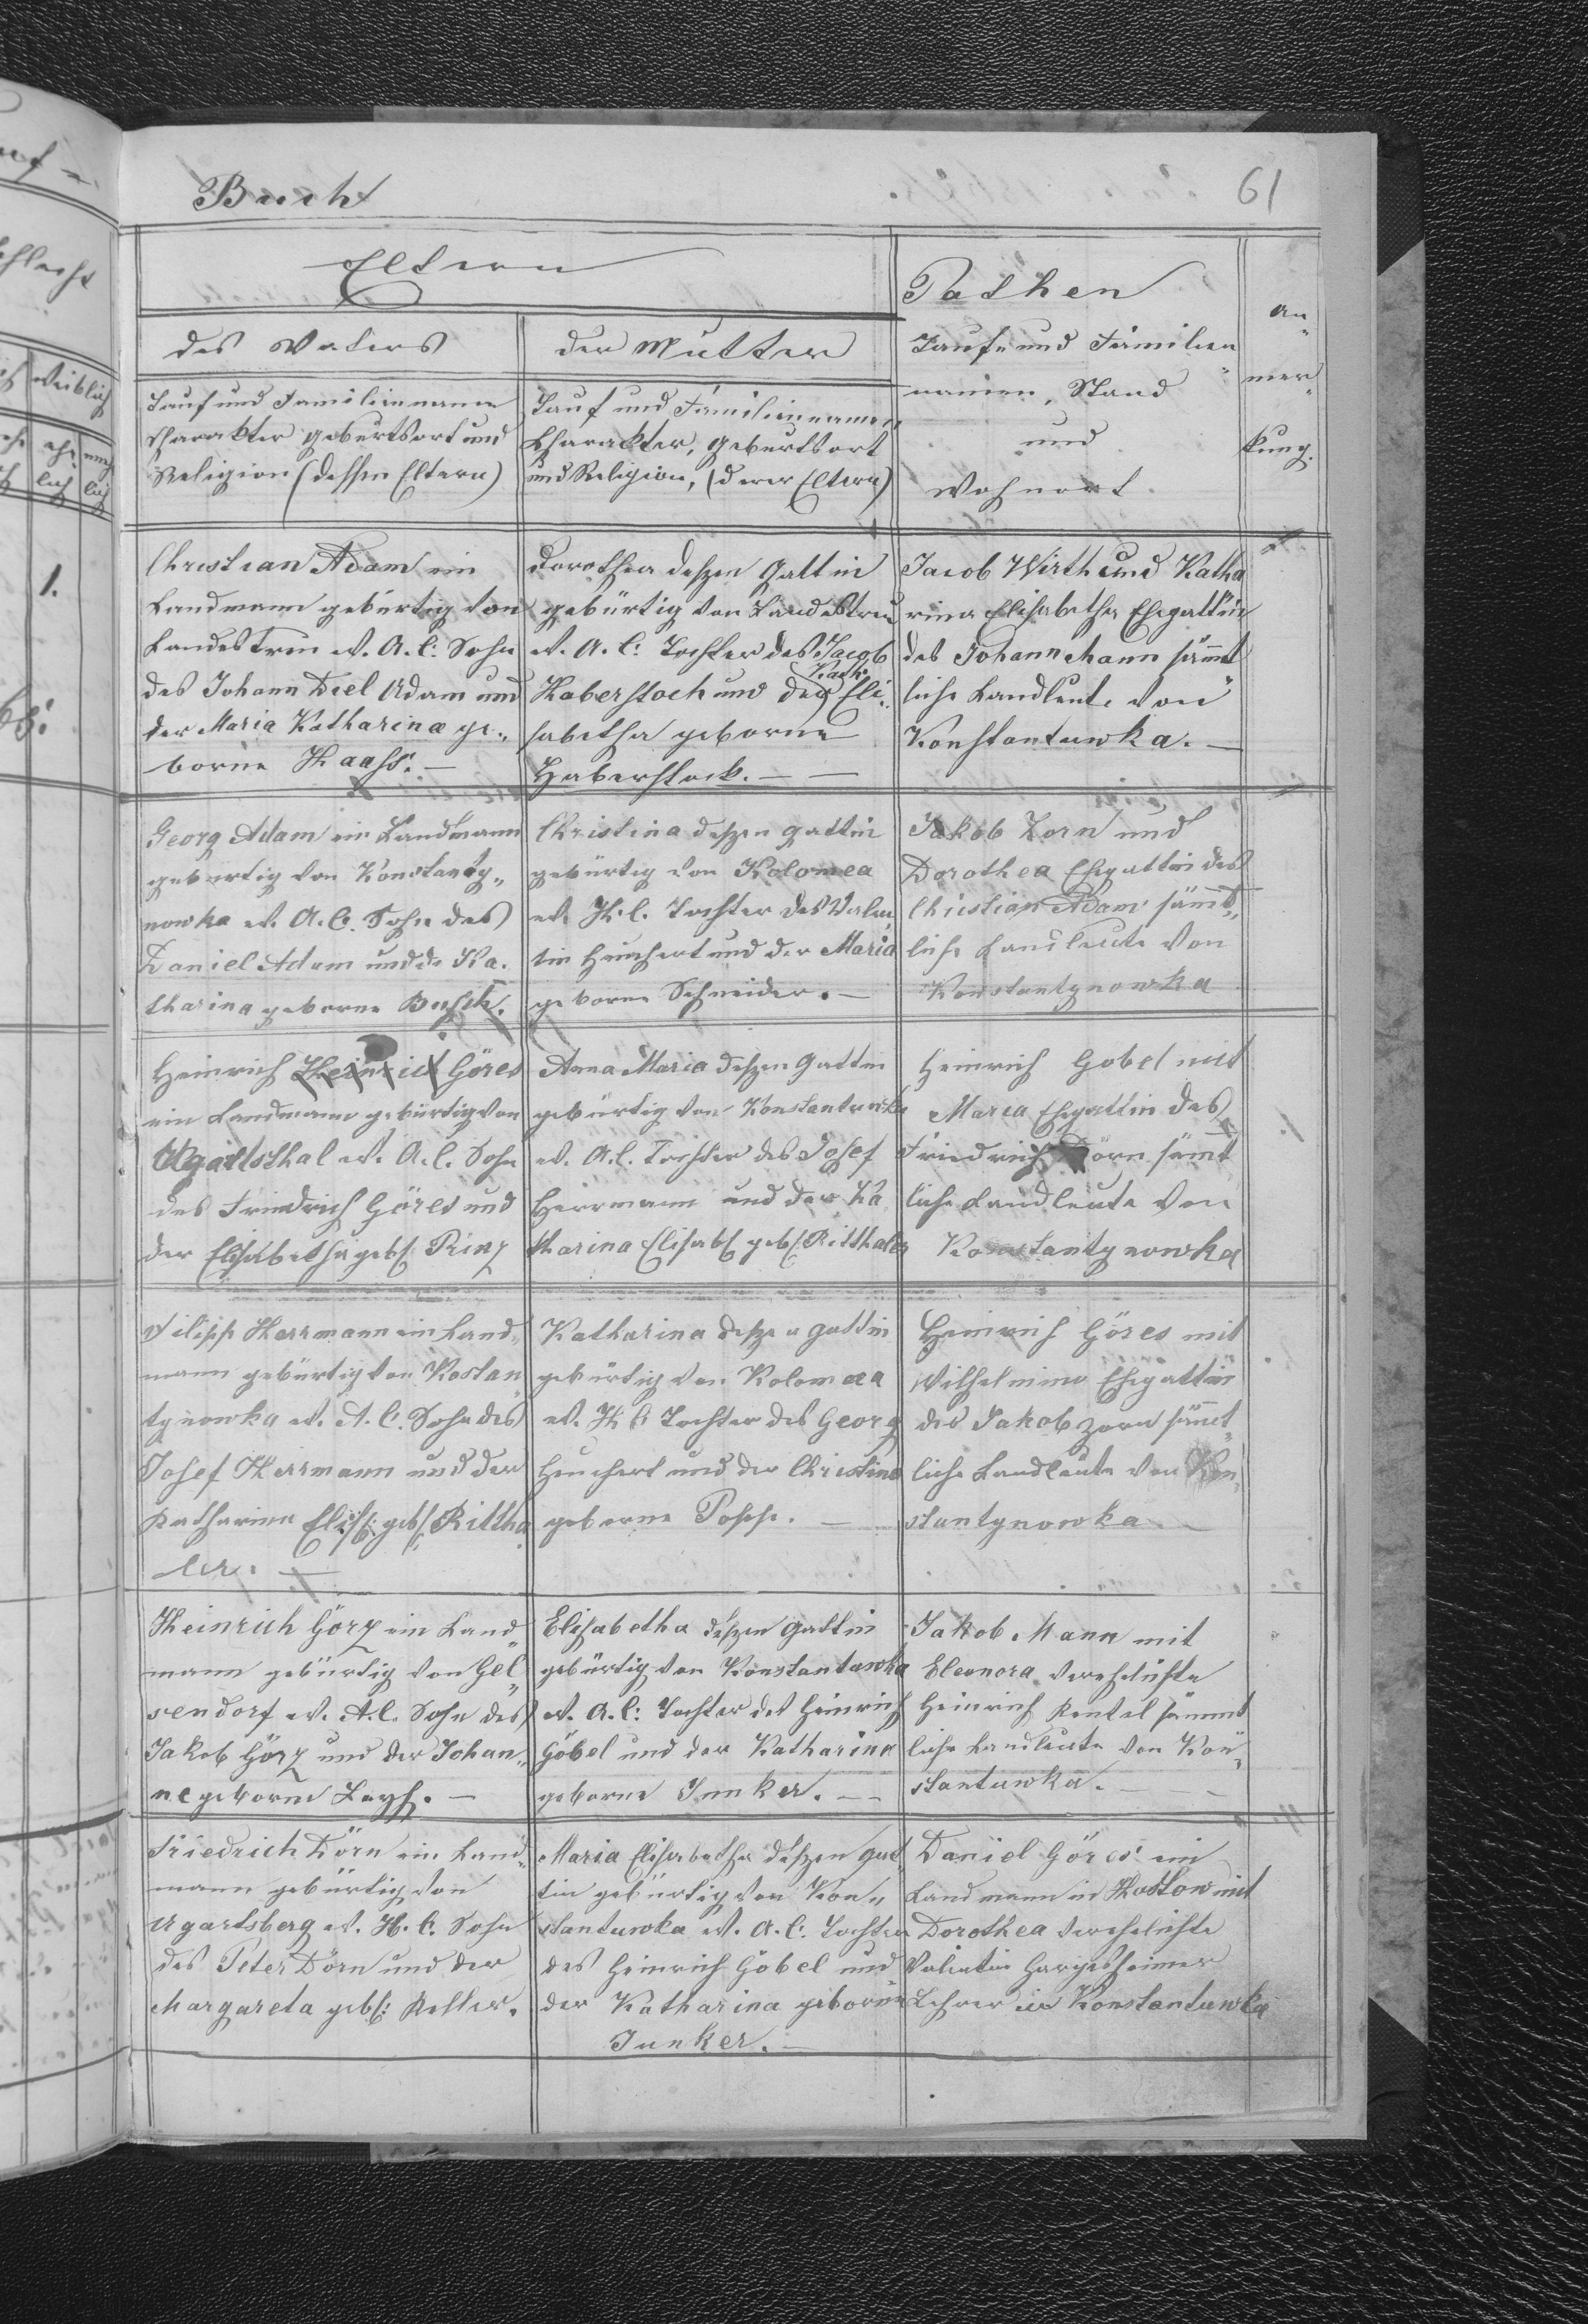 Buch
61
Eltern
des Vaters
Tauf und Familienname
Charakter geburtsort und
Religion (dessen Eltern)
der Mutter
Tauf und Familiennamen
Charakter, geburtsort
und Religion, (derer Eltern)
Pathen
Tauf= und Familien
namen, Stand
und
Wohnort
An
mer
kung.
weiblich
ehe
lich
1.
Christian Adam ein
Landmann gebürtig von
Landestreu ev. A. C: Sohn
des Johann Diel Adam und
der Maria Katharina ge„
borne Haass. —
Dorothea deszen Gattin
gebürtig von Landestreu
ev. A. C: Tochter des Jacob
Kath.
Haberstoch und der Eli„
sabetha geborne
Haberstock. — —
Jacob Wirth und Katha
rina Elisabetha Ehegattin
des Johann Mann sämmt
liche Landleute von
Konstantuwka. —
Georg Adam ein Landmann
gebürtig von Konstanty„
nowka ev. A. C. Sohn des
Daniel Adam und der Ka.
tharina geborne Busch.
Christina deszen gattin
gebürtig von Kolomea
ev. H. C. Tochter des Valen
tin Heuchert und der Maria
geborne Schneider. —
Jakob Zorn und
Dorothea Ehegattin des
Christian Adam sämmt„
liche Landleute von
Konstantynowka
Heinrich Heinrich Göres
ein Landmann gebürtig von
Ugartsthal ev. A. C. Sohn
des Friedrich Göres und
der Elisabetha geb: Prinz
Anna Maria deszen gattin
gebürtig von Konstantuwka
ev. A. C. Tochter des Josef
Herrmann und der Ka
tharina Elisab: geb: Ritthaler
Heinrich Gobel mit
Maria Ehegattin des
Friedrich Dörn sämmt
liche Landleute von
Konstantynowka
Filipp Herrmann ein Land„
mann gebürtig von Kostan
tynowka ev. A. C. Sohn des
Josef Herrmann und der
Katharina Elis: geb: Rittha
ler. —
Katharina deszen gattin
gebürtig von Kolomea
ev. H. C Tochter des Georg
Heuchert und der Christina
geborne Popp. —
Heinrich Göres mit
Wilhelmina Ehegattin
des Jakob Zorn sämmt„
liche Landleute von Kon„
stantynowka —
Heinrich Görz ein Land
mann gebürtig von Gel„
sendorf ev. A. C. Sohn des
Jakob Görz und der Johan„
ne geborne Leyh. —
Elisabetha deszen gattin
gebürtig von Konstantuwka
ev. A. C: Tochter des Heinrich
Göbel und der Katharina
geborne Junker. —
Jakob Mann mit
Eleonora verehelichte
Heinrich Kentel sämmt
liche Landleute von Kon„
stantuwka. —
Friedrich Dörn ein Land„
mann gebürtig von
Ugartsberg ev. H. C. Sohn
des Peter Dörn und der
Margareta geb: Keller.
Maria Elisabetha deszen gat„
tin gebürtig von Kon„
stantuwka ev. A. C: Tochter
des Heinrich Göbel und
der Katharina geborne
Junker. —
Daniel Göres ein
Landmann in Hostow mit
Dorothea verehelichte
Valentin Hargesheimer
Lehrer in Konstantuwka